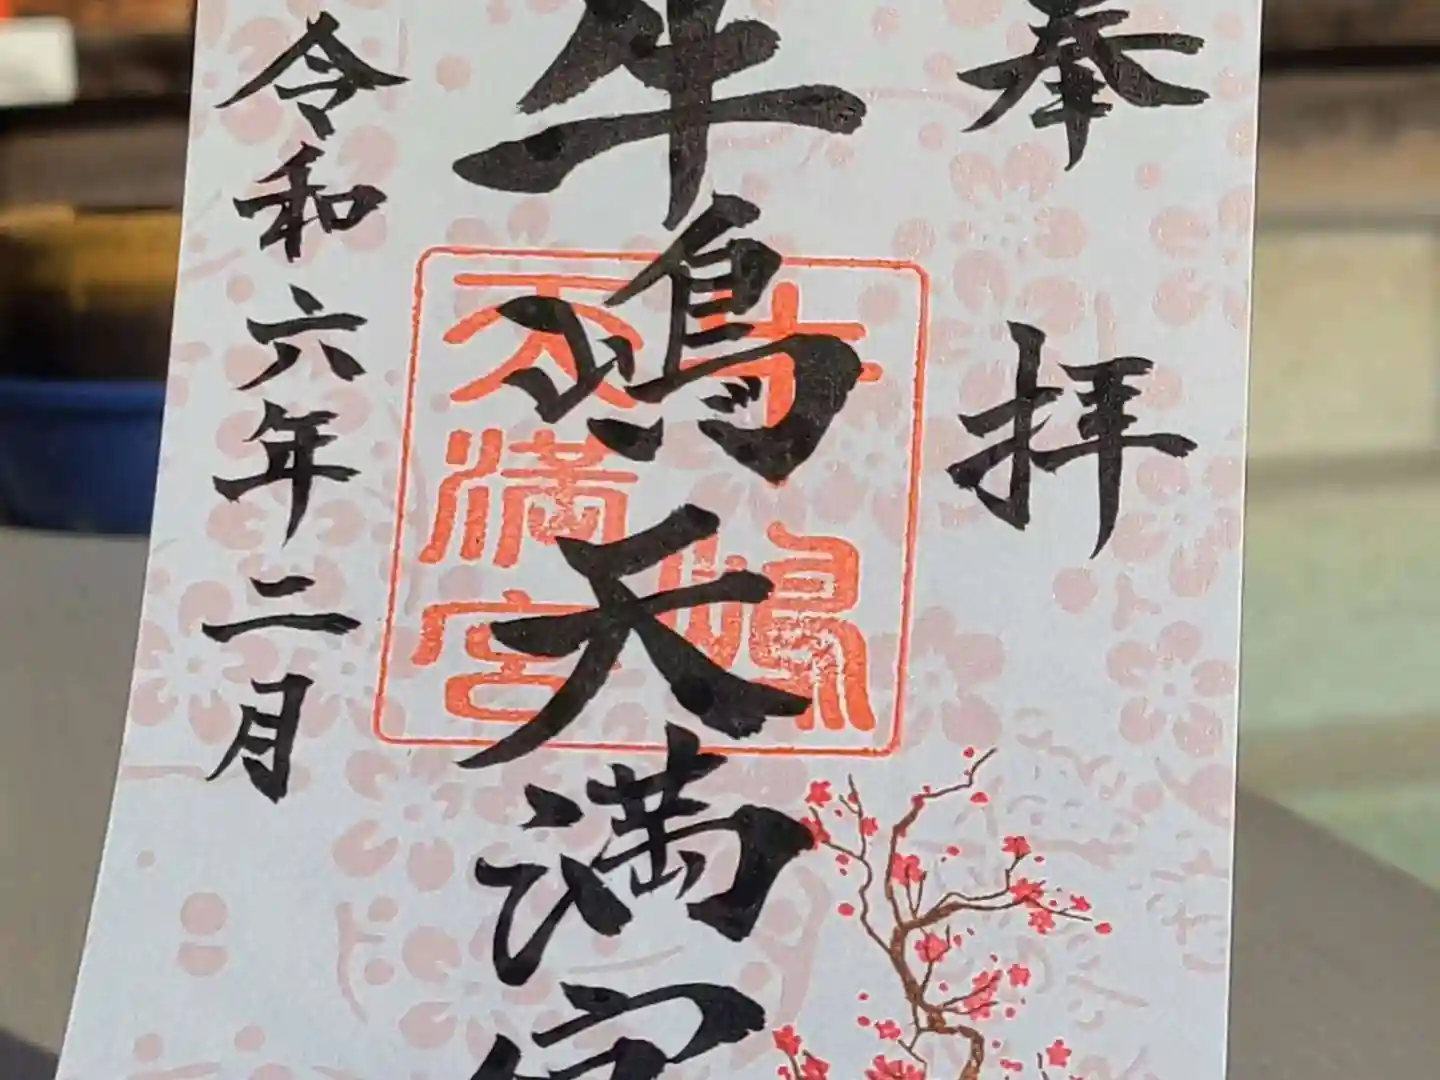 奉拝
牛嶋天満宮
牛嶋
天満宮
令和六年二月